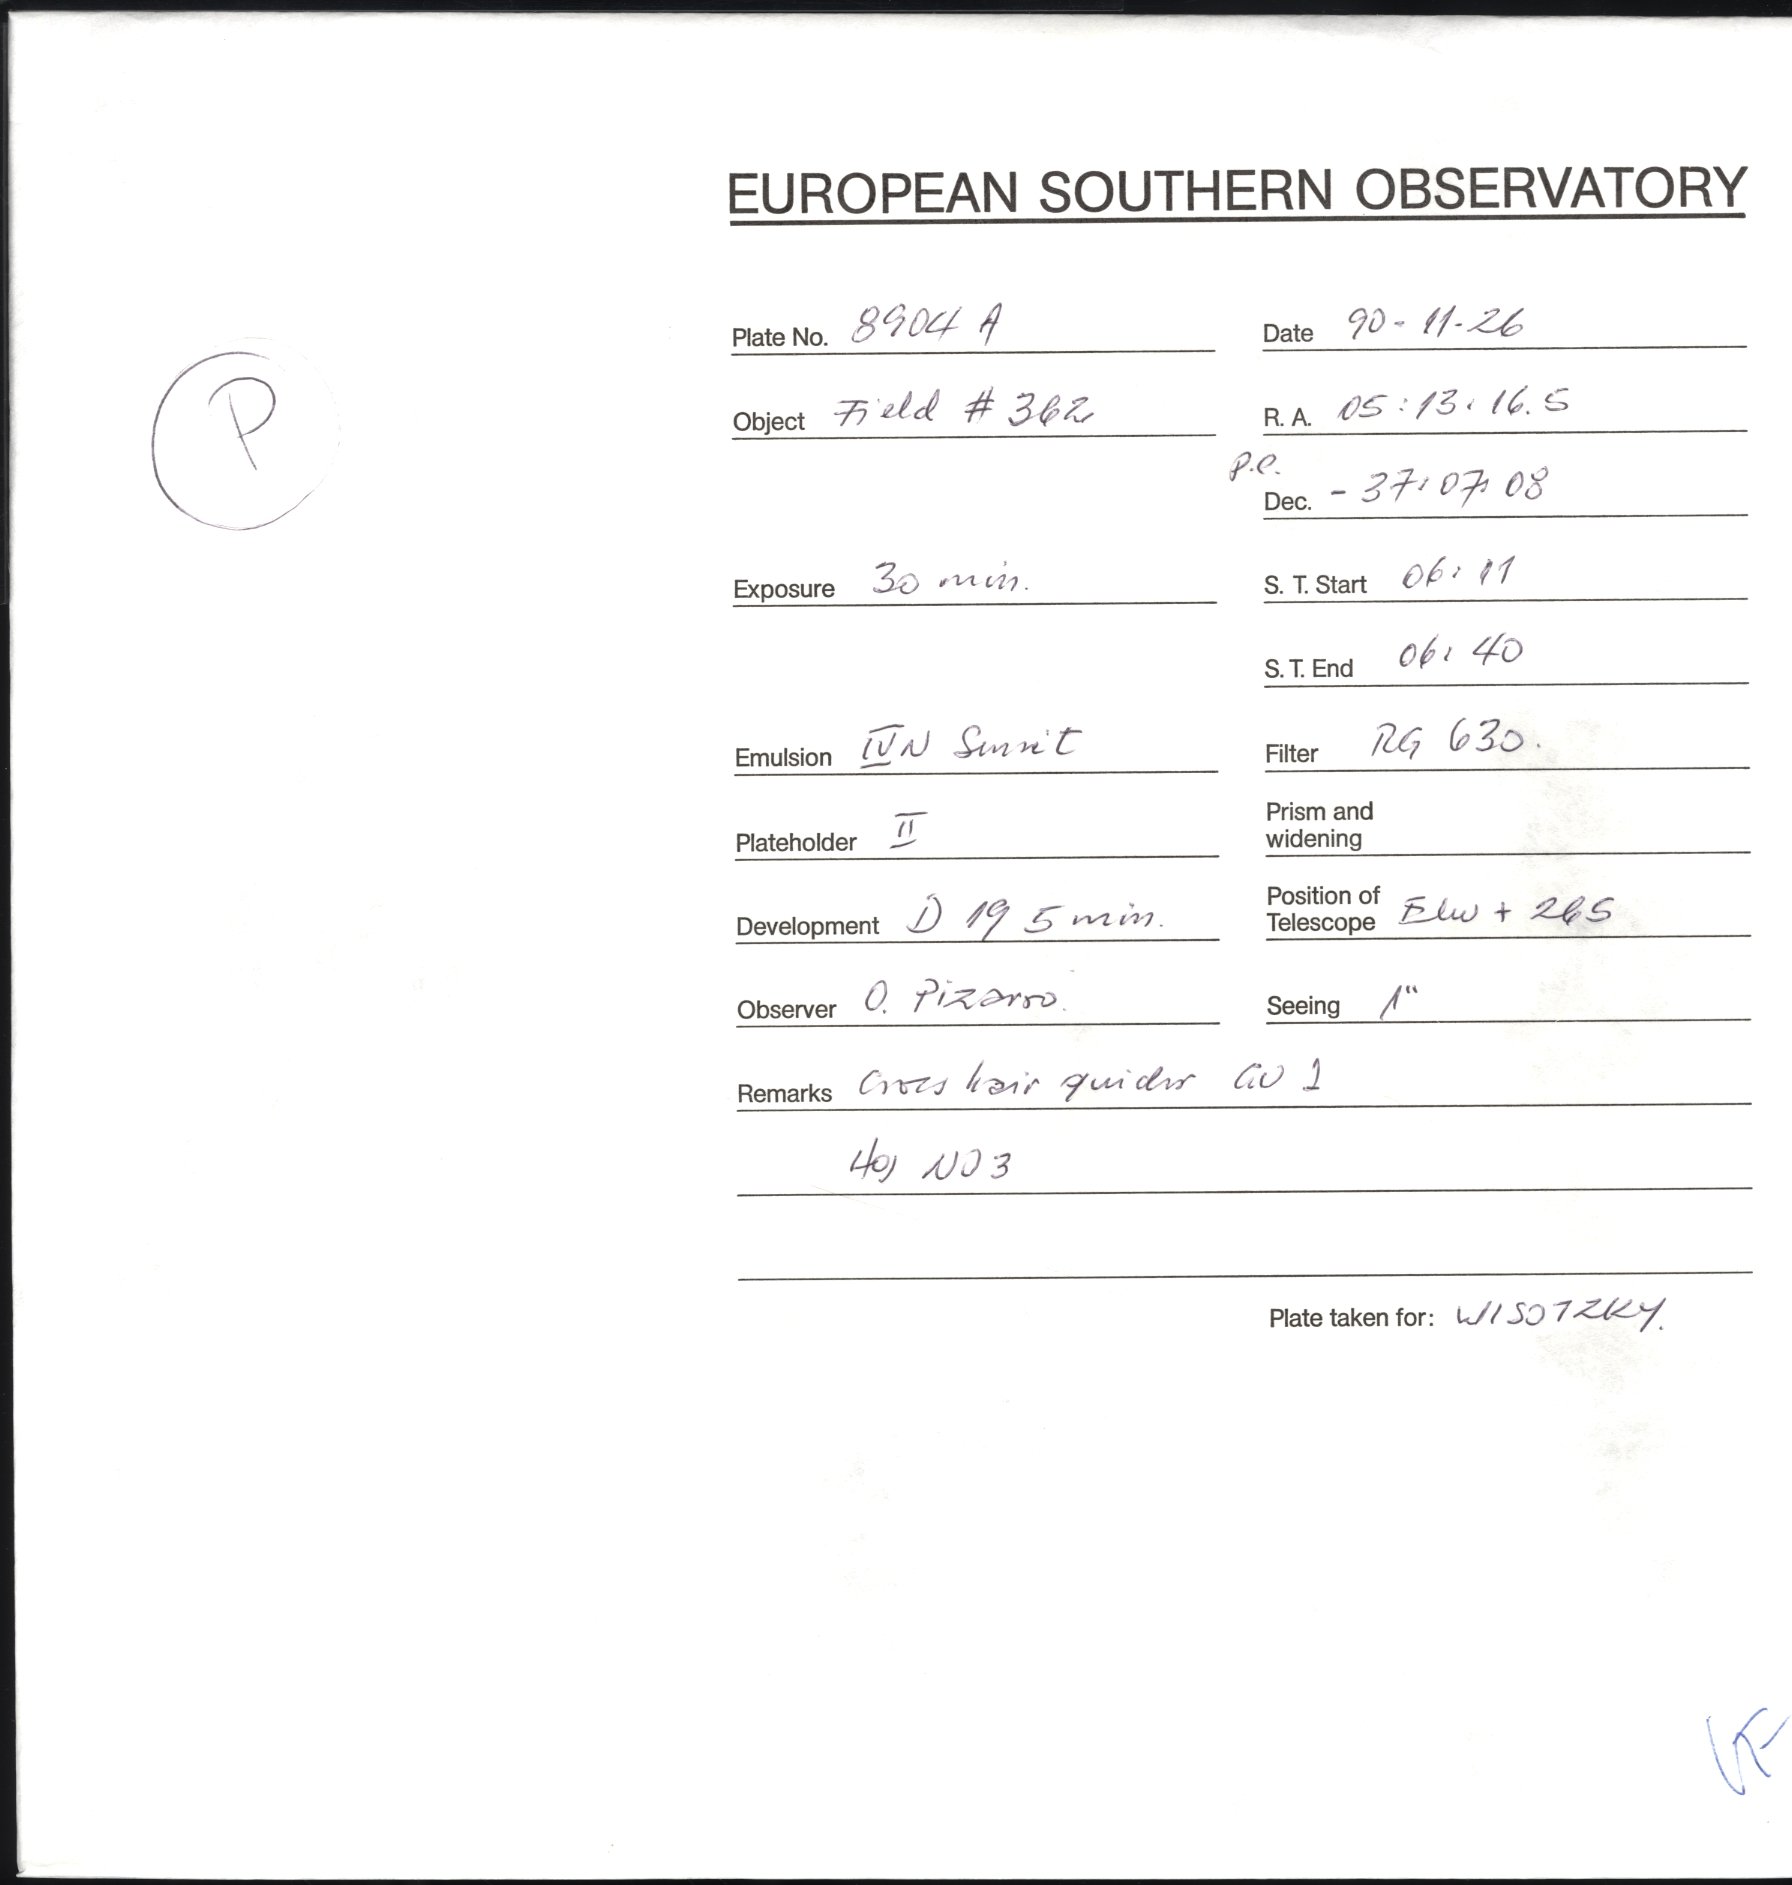 EUROPEAN SOUTHERN OBSERVATORY
Plate No. 8904 A Date 90-11-26
P
Object Field # 362 R. A. 05:13:16.5
p.c.
Dec. - 37:07:08
Exposure 30 min. S. T. Start 06:11
S. T. End 06:40
Emulsion IVN Sensit Filter RG 630.
Plateholder II Prism and
widening
Development D 19 5 min. Position of
Telescope + 265
Observer O. Pizarro. Seeing 1"
Remarks Cross hair guider 1
NO3
Plate taken for: WISOTZKY.